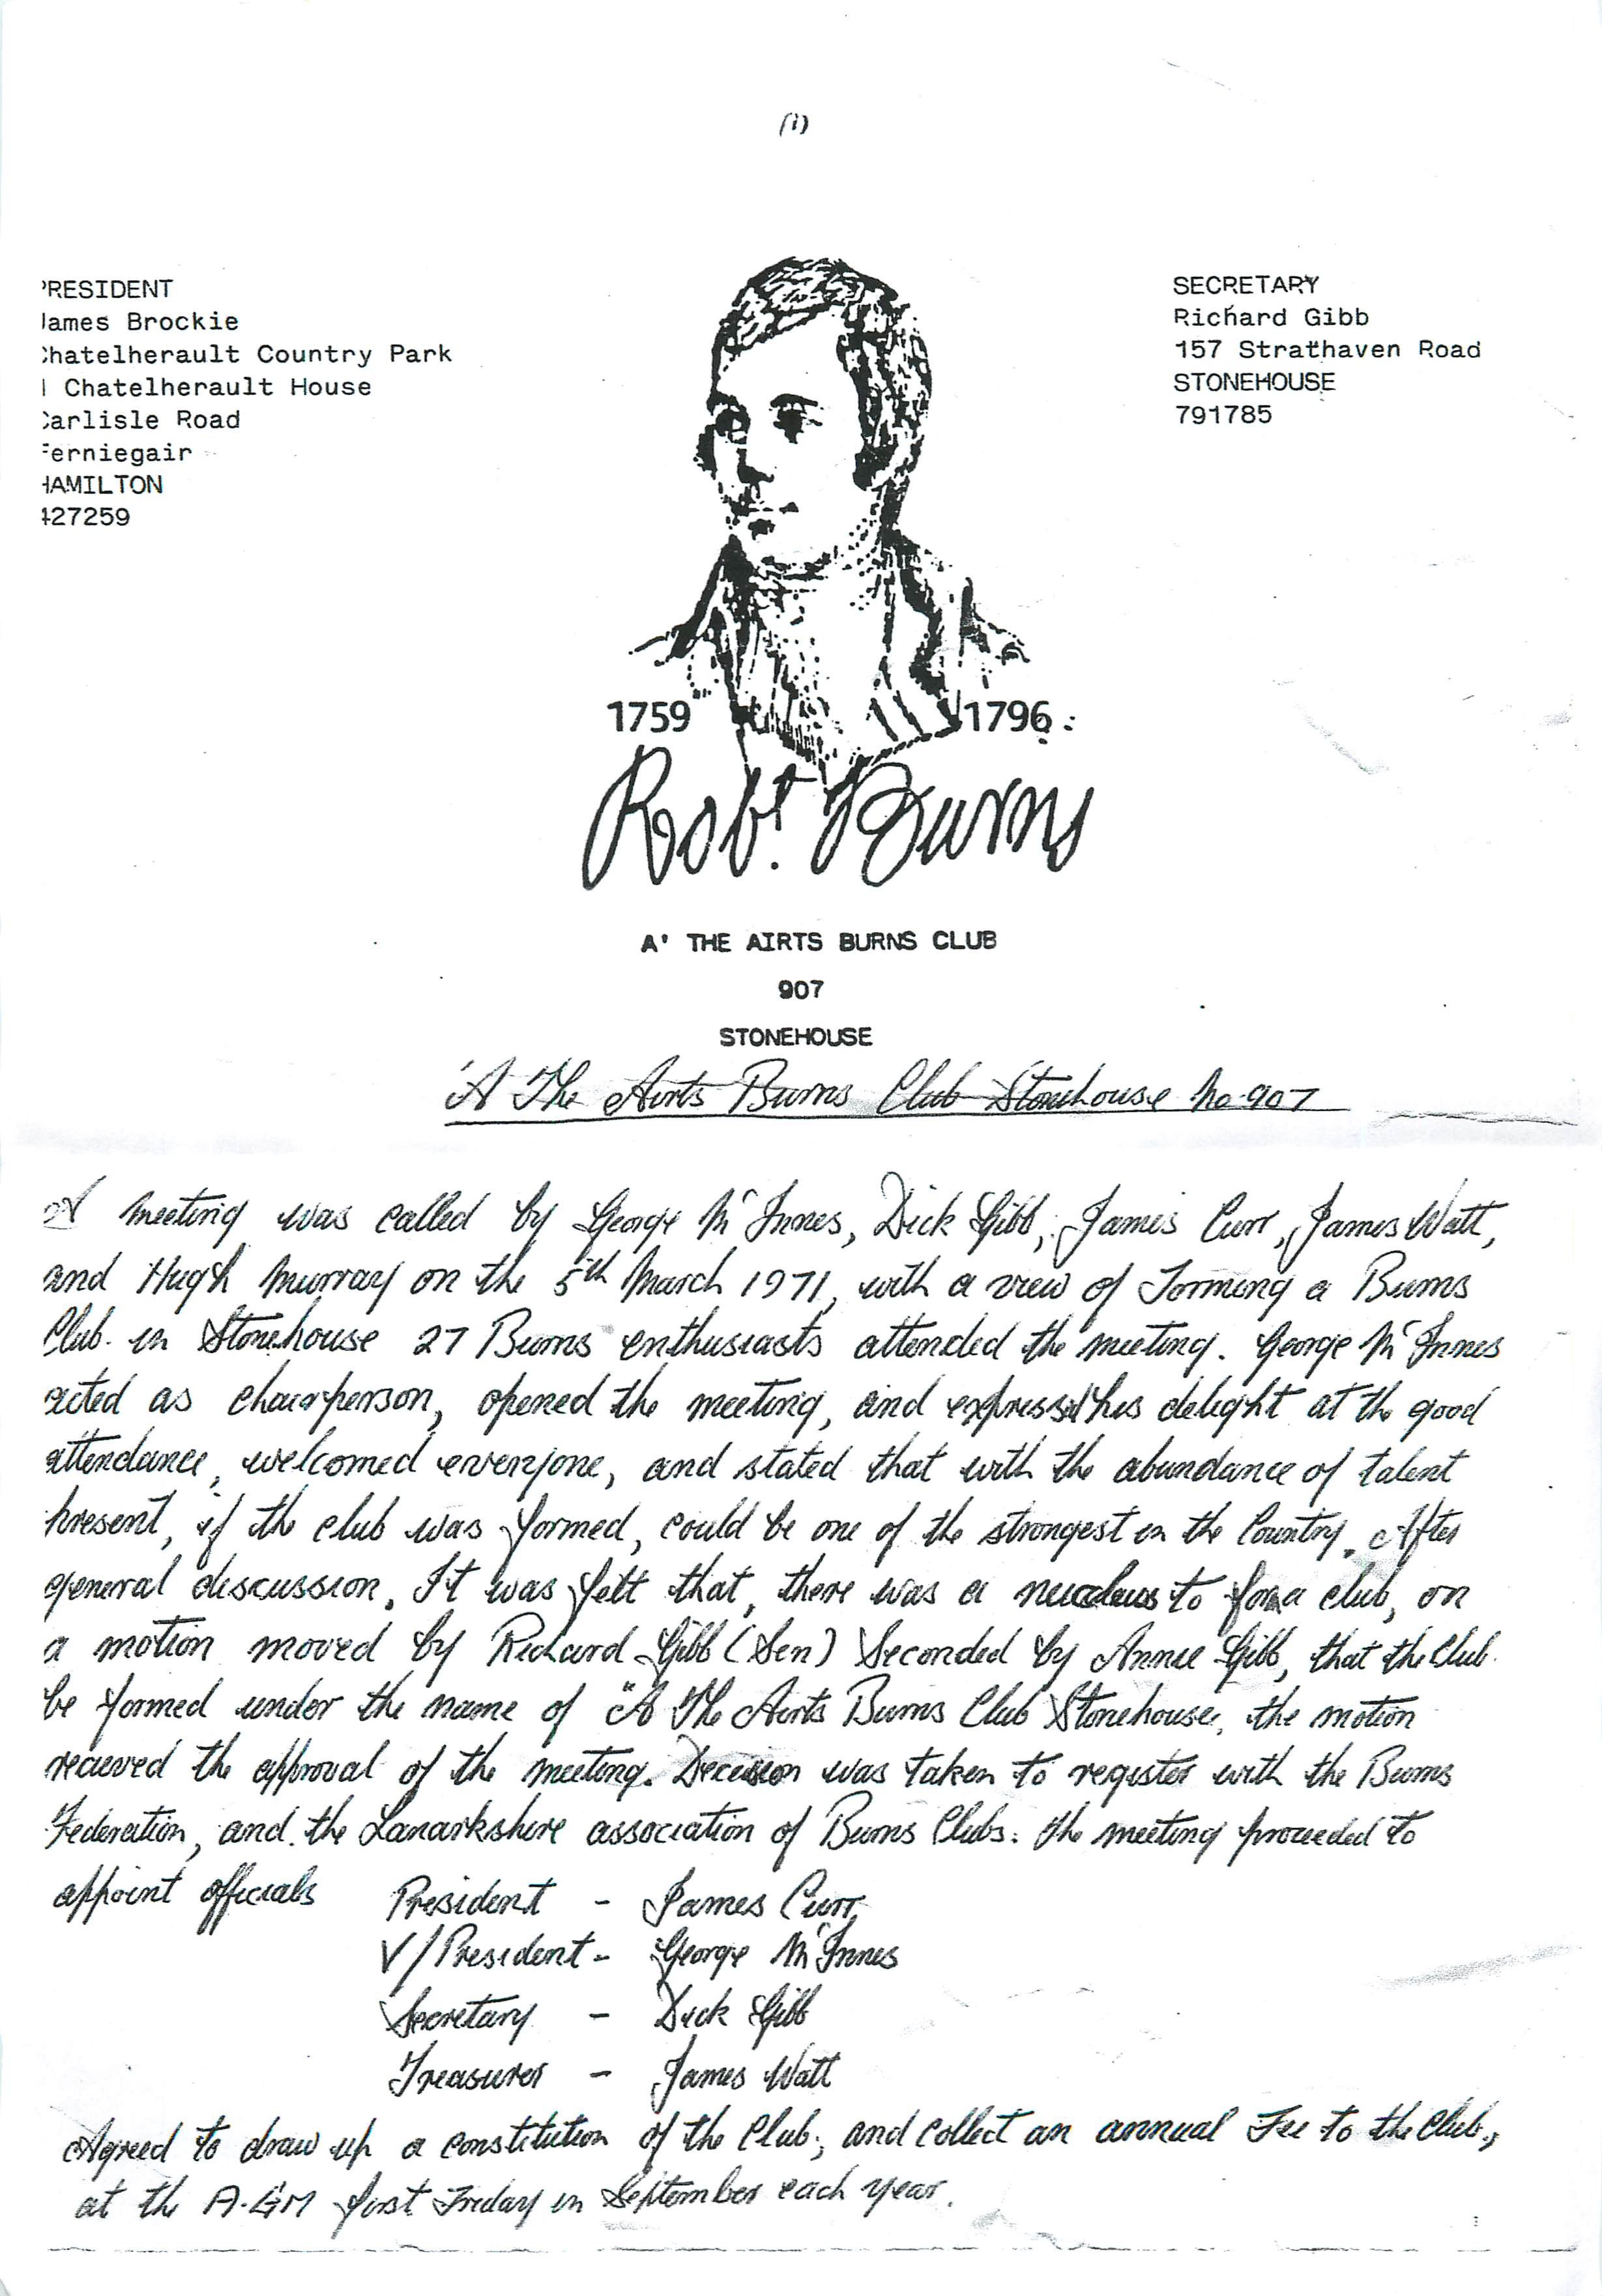 (1)
PRESIDENT
James Brockie
Chatelherault Country Park
1 Chatelherault House
Carlisle Road
Ferniegair
HAMILTON
427259
SECRETARY
Richard Gibb
157 Strathaven Road
STONEHOUSE
791785
1759 1796
Robt. Burns
A' THE AIRTS BURNS CLUB
907
STONEHOUSE
'A The Airts Burns Club Stonehouse No. 907
A meeting was called by George McInnes, Dick Gibb, James Curr, James Watt,
and Hugh Murray on the 5th March 1971, with a view of Forming a Burns
Club. in Stonehouse 27 Burns enthusiasts attended the meeting. George McInnes
acted as chairperson, opened the meeting, and expressed his delight at the good
attendance, welcomed everyone, and stated that with the abundance of talent
present, if the club was formed, could be one of the strongest in the Country. After
general discussion. It was felt that, there was a nucleus to form a club, on
a motion moved by Richard Gibb (Sen) Seconded by Annie Gibb, that the Club.
be formed under the name of "A The Airts Burns Club Stonehouse, the motion
recieved the approval of the meeting. Decision was taken to register with the Burns
Federation, and the Lanarkshire association of Burns Clubs. The meeting proceeded to
appoint officials President - James Curr,
V/President - George McInnes
Secretary - Dick Gibb
Treasurer - James Watt
Agreed to draw up a constitution of the Club, and collect an annual Fee to the Club.,
at the A.G.M first Friday in September each year.